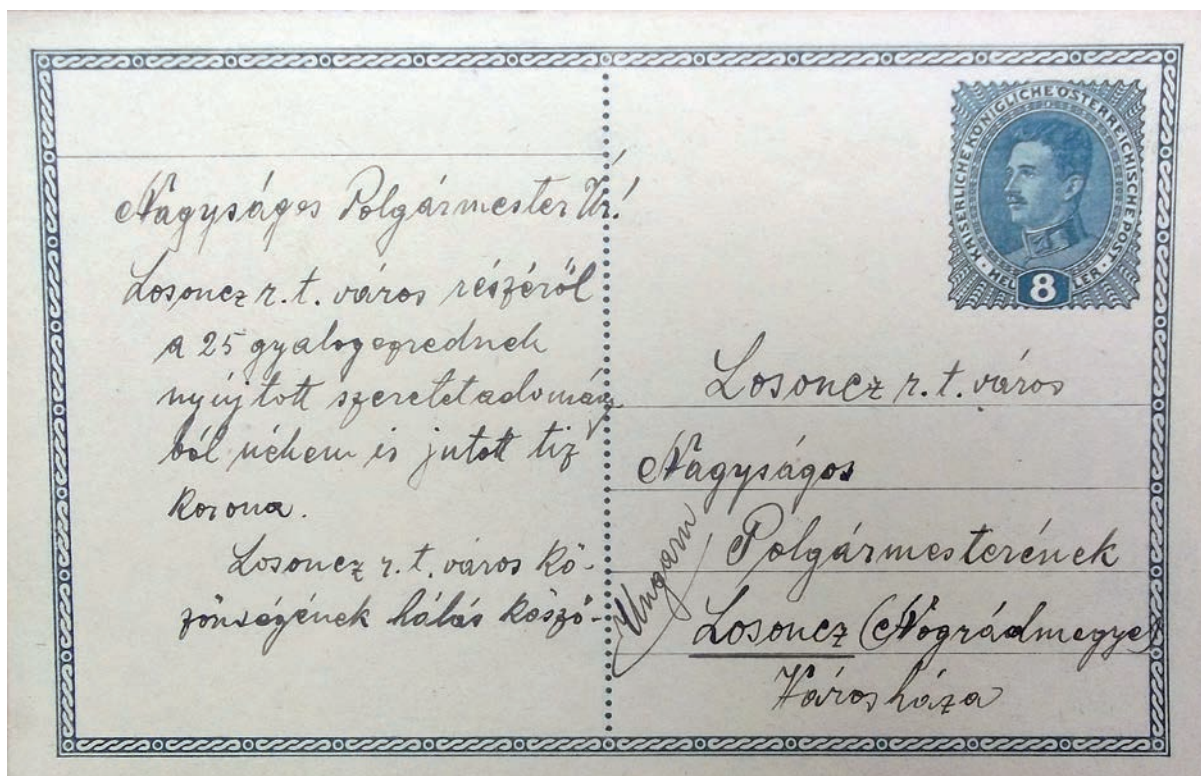 Nagyságos Polgármester Úr!
Losoncz r. t. város részéről
a 25 gyalogezrednek
nyújtott szeretetadomány
ból nékem is jutott tiz
korona.
Losoncz r. t. város kö-
zönségének hálás köszö-
KAISERLICHE KÖNIGLICHE ÖSTERREICHISCHE POST
HELLER
8
Losoncz r. t. város
Nagyságos
Polgármesterének
Ungarn
Losoncz (Nográdmegye)
Városháza